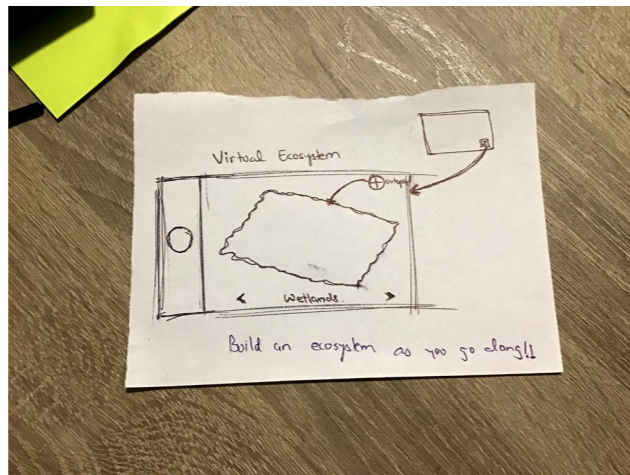 Virtual Ecosystem
Wetlands.
Build an ecosystem as you go along!!